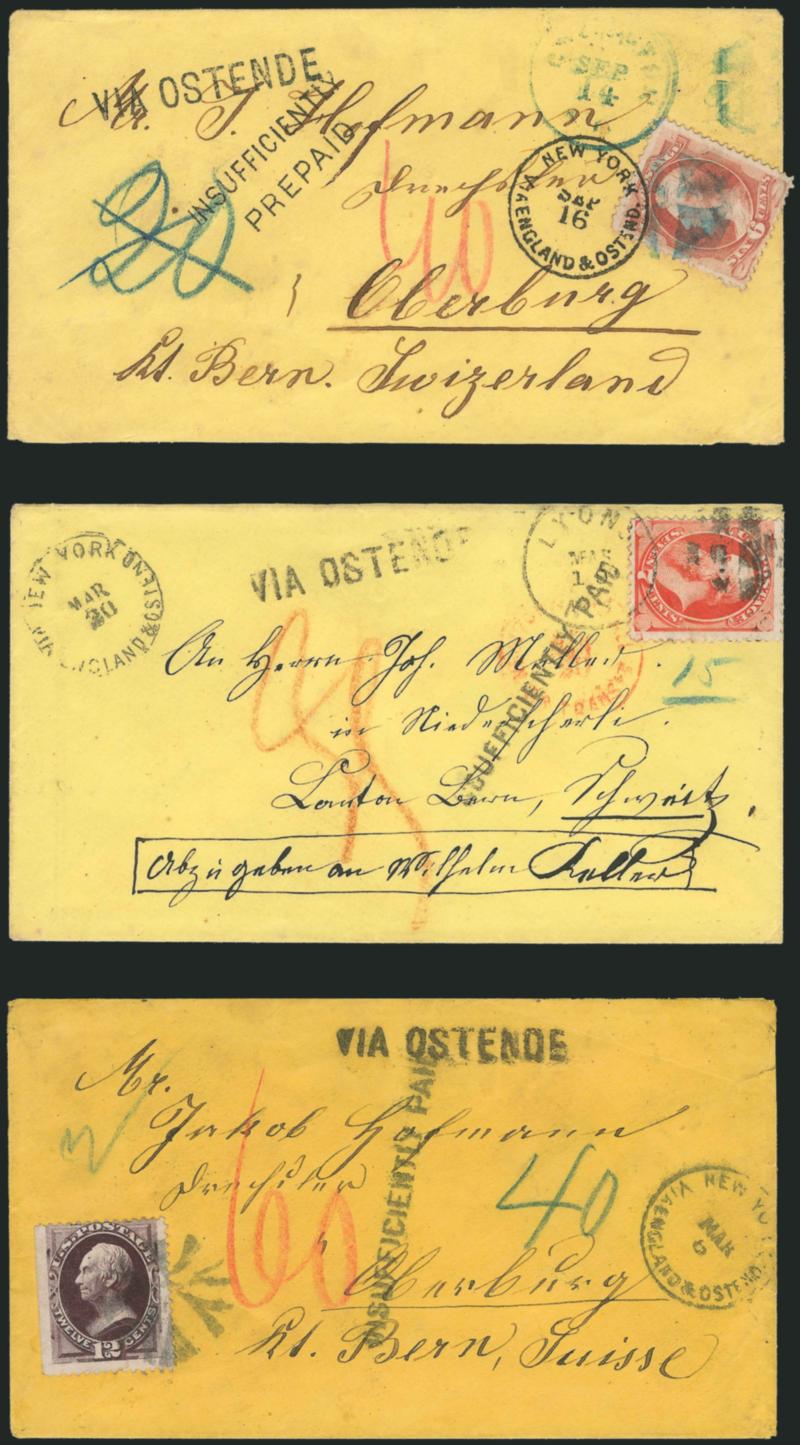 VIA OSTENDE
INSUFFICIENTLY
PREPAID
SEP
14
NEW YORK
SEP
16
VIA ENGLAND & OSTEND.
SIX 6 CENTS
20
60
Mr. J. Hofmann
Drechsler
Oberburg
Kt. Bern. Swizerland
NEW YORK
MAR
20
VIA ENGLAND & OSTEND
VIA OSTENDE
LYONS
MAR
INSUFFICIENTLY PAID
TRANSIT
15
An Herrn Joh. Müller.
in Niederscherli.
Canton Bern, Schweitz.
Abzugeben an Wilhelm Keller
VIA OSTENDE
INSUFFICIENTLY PAID
Mr.
Jakob Hofmann
Drechsler
60
40
Oberburg
Kt. Bern, Suisse
NEW YORK
MAR
6
VIA ENGLAND & OSTEND
U.S. POSTAGE
TWELVE 12 CENTS